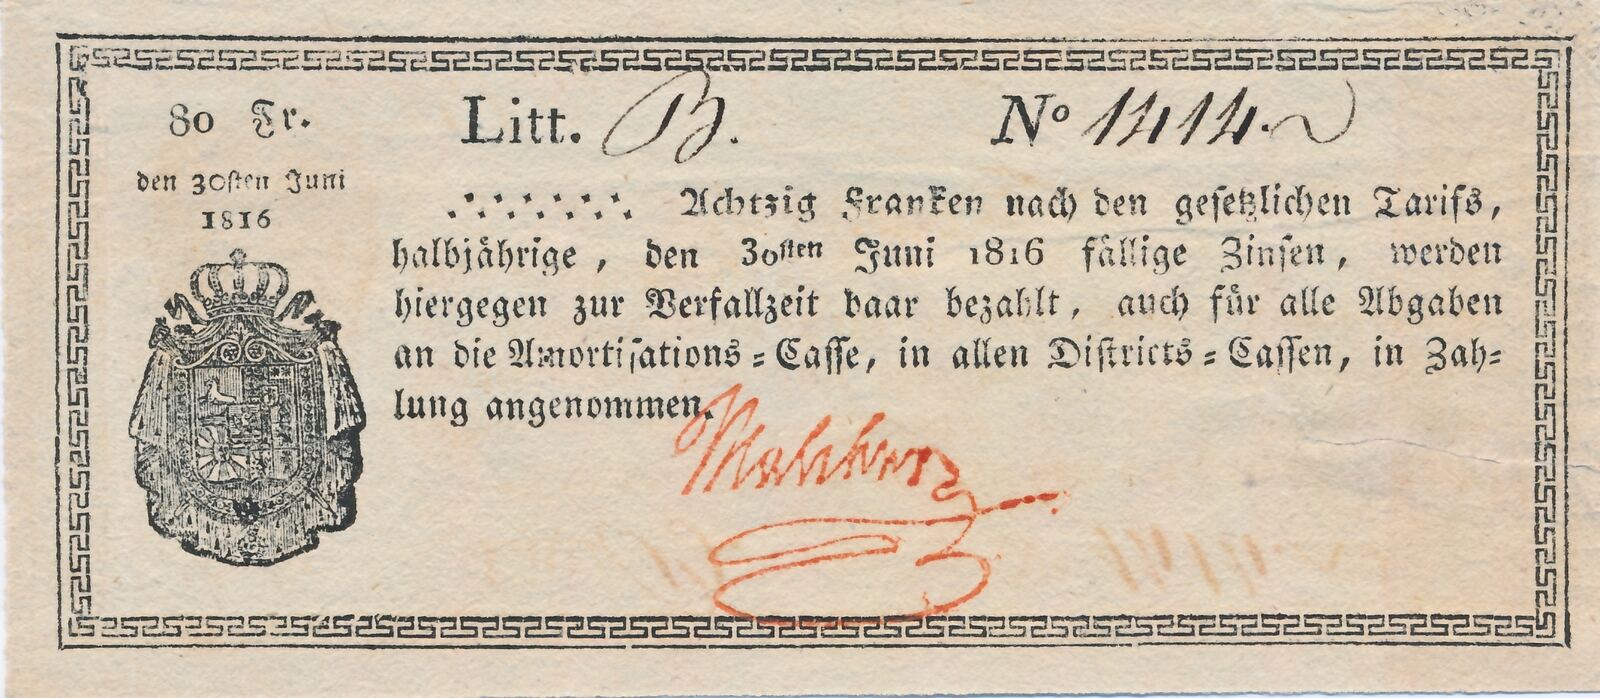 80 Fr.
Litt. B.
No 1414.
den 30sten Juni
1816
Achtzig Franken nach den gesetzlichen Tarifs,
halbjährige, den 30sten Juni 1816 fällige Zinsen, werden
hiergegen zur Verfallzeit baar bezahlt, auch für alle Abgaben
an die Amortisations=Casse, in allen Districts=Cassen, in Zah=
lung angenommen.